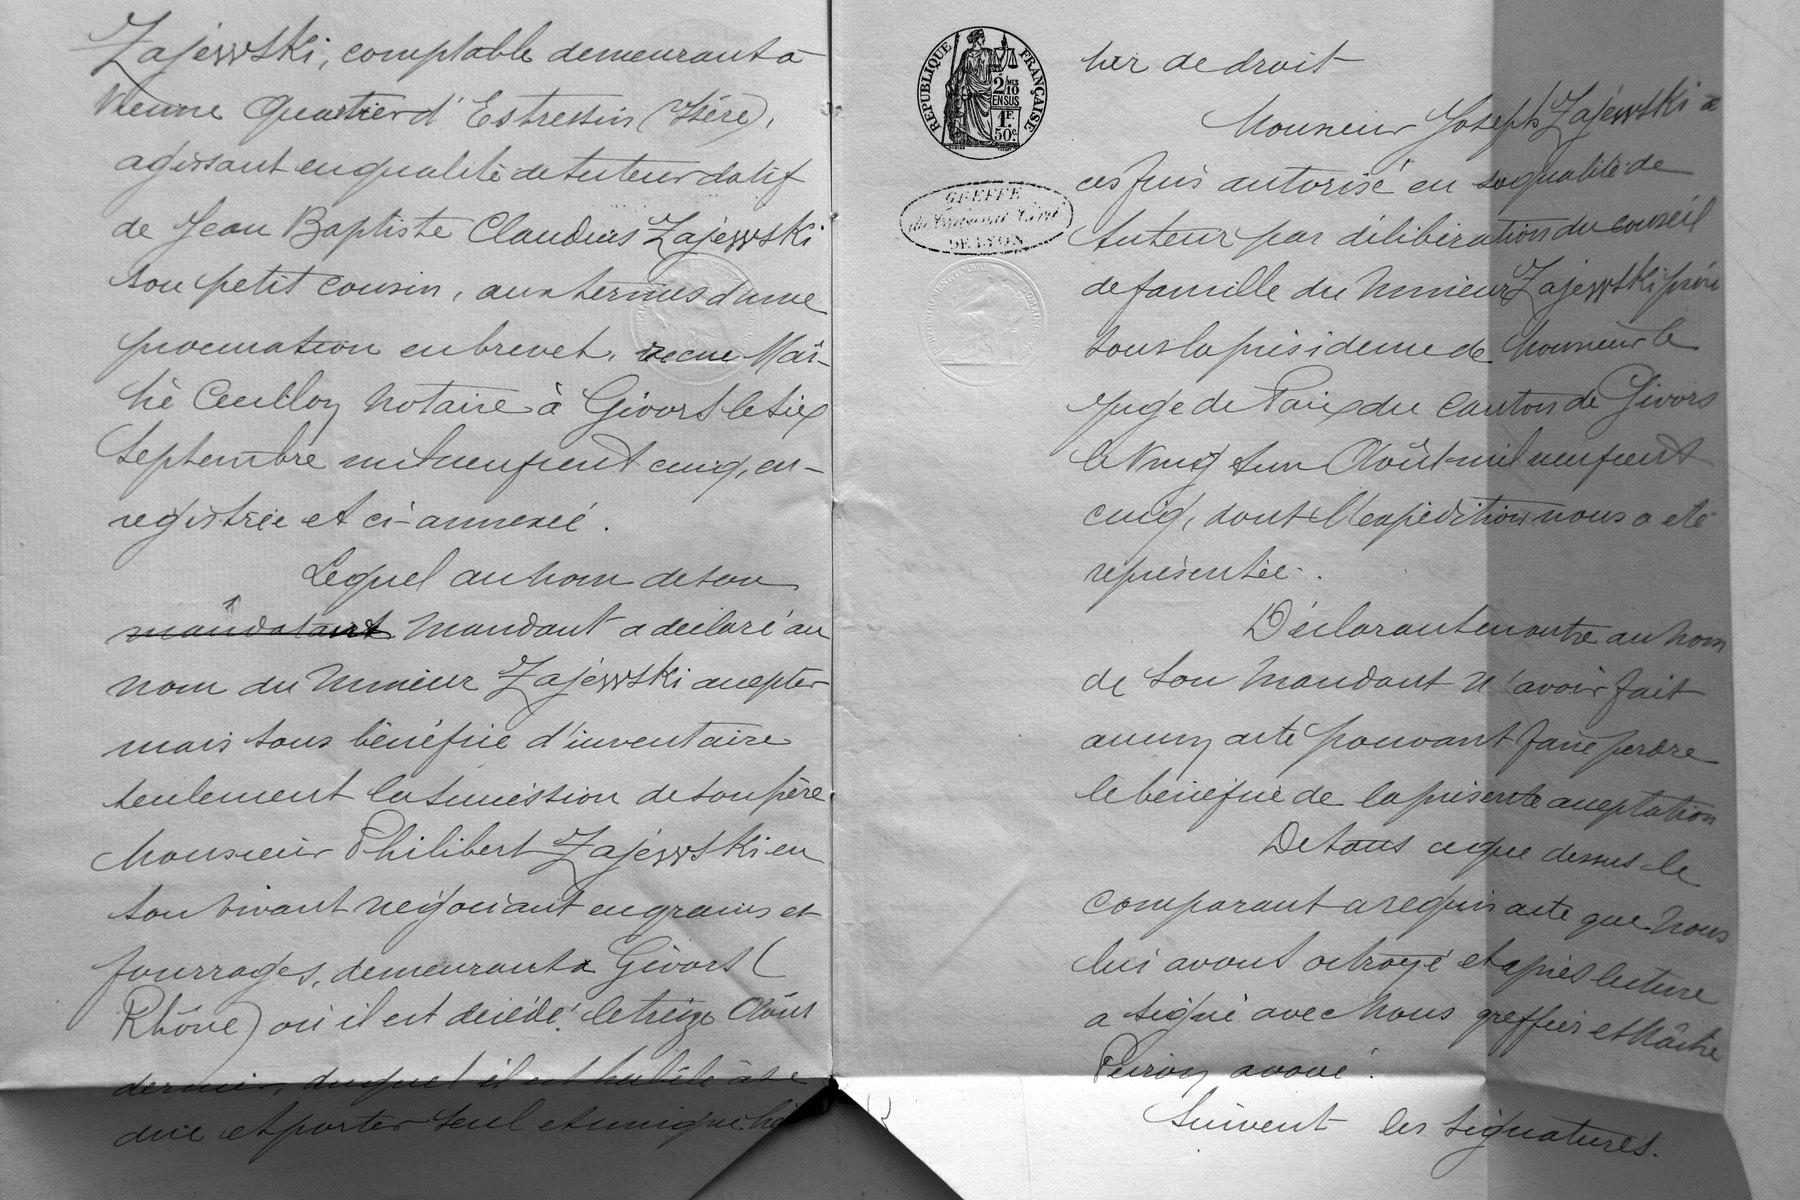 Zajewski, comptable demeurant à
Vienne Quartier d'Estressin (Isère),
agissant en qualité de tuteur datif
de Jean Baptiste Claudius Zajewski
son petit cousin, aux termes d'une
procuration en brevet, reçue Maî-
tre Cuilloz notaire à Givors le six
Septembre mil neuf cent cinq, en-
registrée et ci-annexée.
Lequel au nom de son
mandataire mandant a déclaré au
nom du mineur Zajewski accepter
mais sous bénéfice d'inventaire
seulement la succession de son père
Monsieur Philibert Zajewski en
son vivant négociant en grains et
fourrages, demeurant à Givors (
Rhône) où il est décédé le treize Août
dernier, duquel il est habile à se
dire et porter seul et unique hé-
RÉPUBLIQUE FRANÇAISE
2/10 MES
EN SUS
1F.
50c.
GREFFE
du Tribunal Civil
DE LYON
tier de droit
Monsieur Joseph Zajewski a
ces fins autorisé en sa qualité de
tuteur par délibération du conseil
de famille du mineur Zajewski prise
sous la présidence de Monsieur le
Juge de Paix du canton de Givors
le vingt un Août mil neuf cent
cinq, dont l'expédition nous a été
représentée.
Déclarant en outre au nom
de son mandant n'avoir fait
aucun acte pouvant faire perdre
le bénéfice de la présente acceptation
De tout ce que dessus le
comparant a requis acte que nous
lui avons octroyé et après lecture
a signé avec nous greffier et Maître
avoué.
Suivent les signatures.